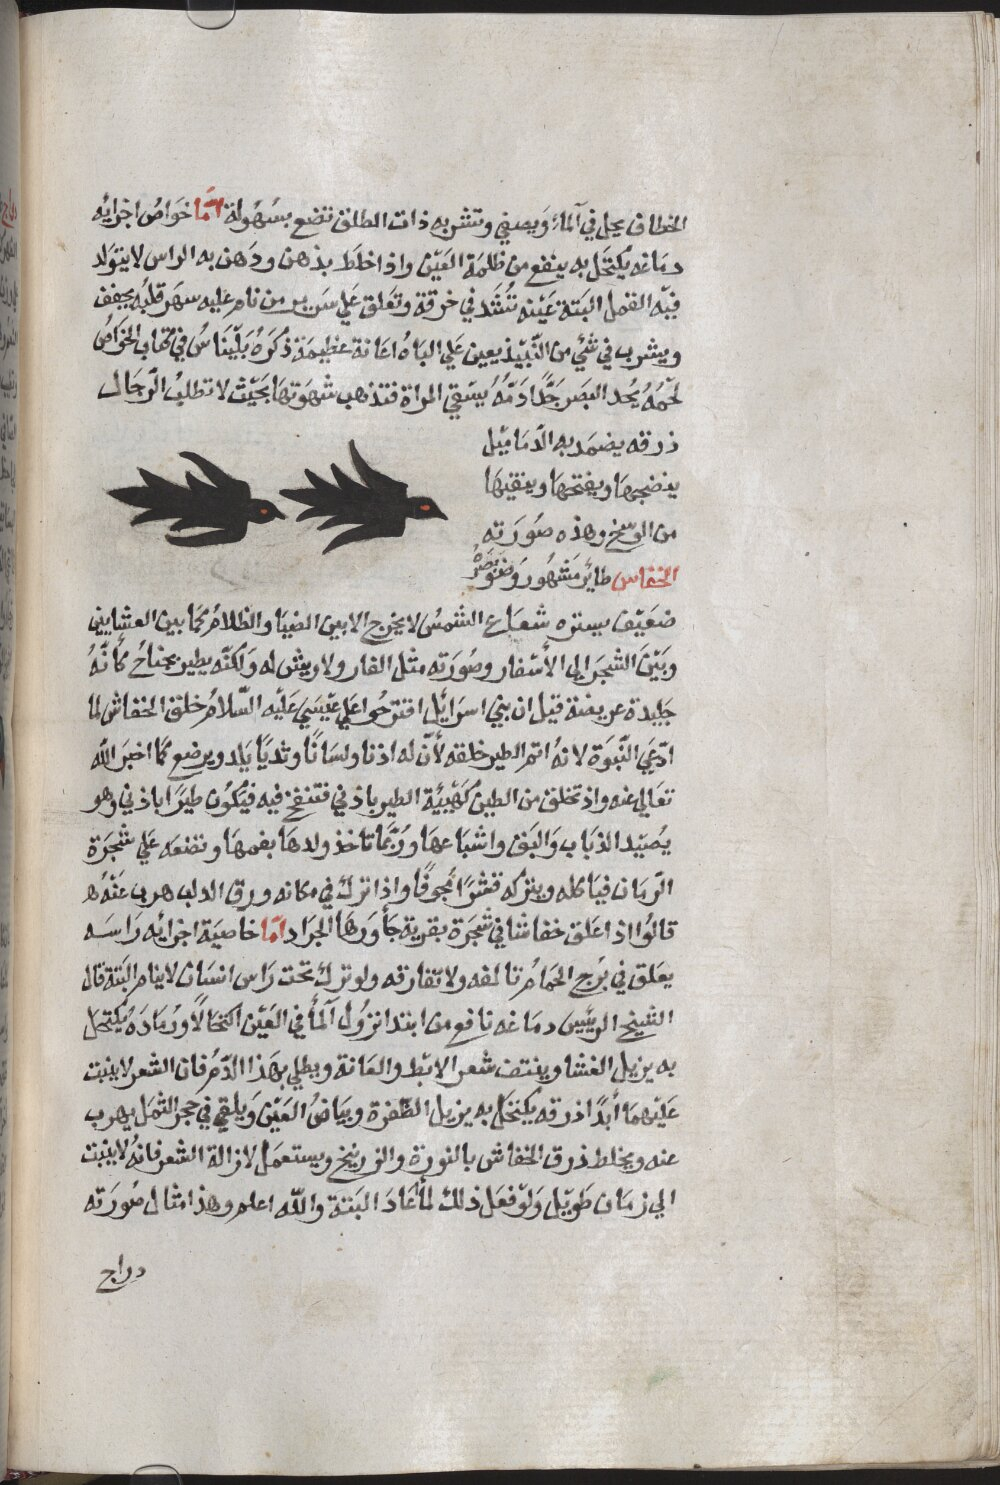 الخطاف يحل في آلماء ويصفي وتشربه ذات الطلق تضع بسهولة امّا خواص اجزائه
دماغه يكتحل به ينفع من ظلمة العين واذا خلط بدهن ودهن به الراس لا يتولد
فيه القمل البتة عينه تشد في خرقة وتعلق علي سرير من نام عليه سهر قلبه يجفف
ويشرب في شيء من النبيذ يعين علي الباه اعانة عظيمة ذكره بليناس في كتاب الخواص
لحمه يحد البصر جدًا دمه يسقي المراة فتذهب شهوتها بحيث لا تطلب الرجال
ذرقه يضمد به الدماميل
ينضجها ويفتحها وينقيها
من الوسخ وهذه صورته
الخفاس طاير مشهور وضوبصره
ضعيف يستره شعاع الشمس لا يخرج الا بين الضيا والظلام كما بين العشايين
وبين الشجر الى الأسفار وصورته مثل الفار ولا ريش له ولكنه يطير بجناح كأنه
جليدة عريضة قيل ان بني اسرايل اقترحوا علي عيسي عليه السلام خلق الخفاش لما
ادعي النبوة لانه اتم الطير خلقه لأن له اذنا ولسانًا وثديا يلد ويرضع كما اخبر الله
تعالي عنه واذ تخلق من الطين كهيية الطير باذني فتنفخ فيه فيكون طيرًا باذني وهو
يصيد الذباب والبق واشباعها وربما تاخذ ولدها بفمها وتضعه علي شجرة
الرمان فياكله ويتركه قشرًا مجوفًا واذا ترك في مكانه ورق الدلب هرب عنه
قالوا اذ اعلق خفاشا في شجرة بقرية جأورها الجراد امّا خاصية اجزائه راسه
يعلق في برج الحمام تالفه ولا تفارقه ولو ترك تحت راس انسان لا ينام البتة قال
الشيخ الرييس دماغه نافع من ابتدا نزول آلمأ في العين اكتحالًا ورماده يكتحل
به يزيل الغشا وينتف شعر الابط والعانة ويطلي بهذا الدم فان الشعر لا ينبت
عليهما أبدًا ذرقه يكتحل به يزيل الظفرة وبياض العين ويلقي في حجر النمل يهرب
عنه ويخلط ذرق الخفاش بالنورة والزرنيخ ويستعمل لازالة الشعر فانه لا ينبت
الي زمان طويل ولو فعل ذلك لما عاد البتة والله اعلم وهذا مثال صورته
دراج